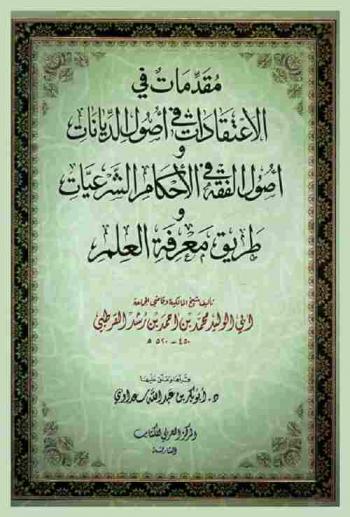 مُقَدِّمَاتٌ في
الاعْتِقَادَات في أصُولِ الدِّيَانَات
و
أصُولِ الفِقْهِ في الأَحْكَامِ الشَّرْعِيَّات
و
طَرِيقِ مَعْرِفَةِ العِلْمِ
تأليف شيخ المالكية وقاضي الجماعة
أبي الوليد محمد بن احمد بن رشد القرطبي
٤٥٠ - ٥٢٠ ھ
قرأها وعلق عليها
د. أبو بكر بن عبد الله سعداوي
المركز العربي للكتاب
الشارقة